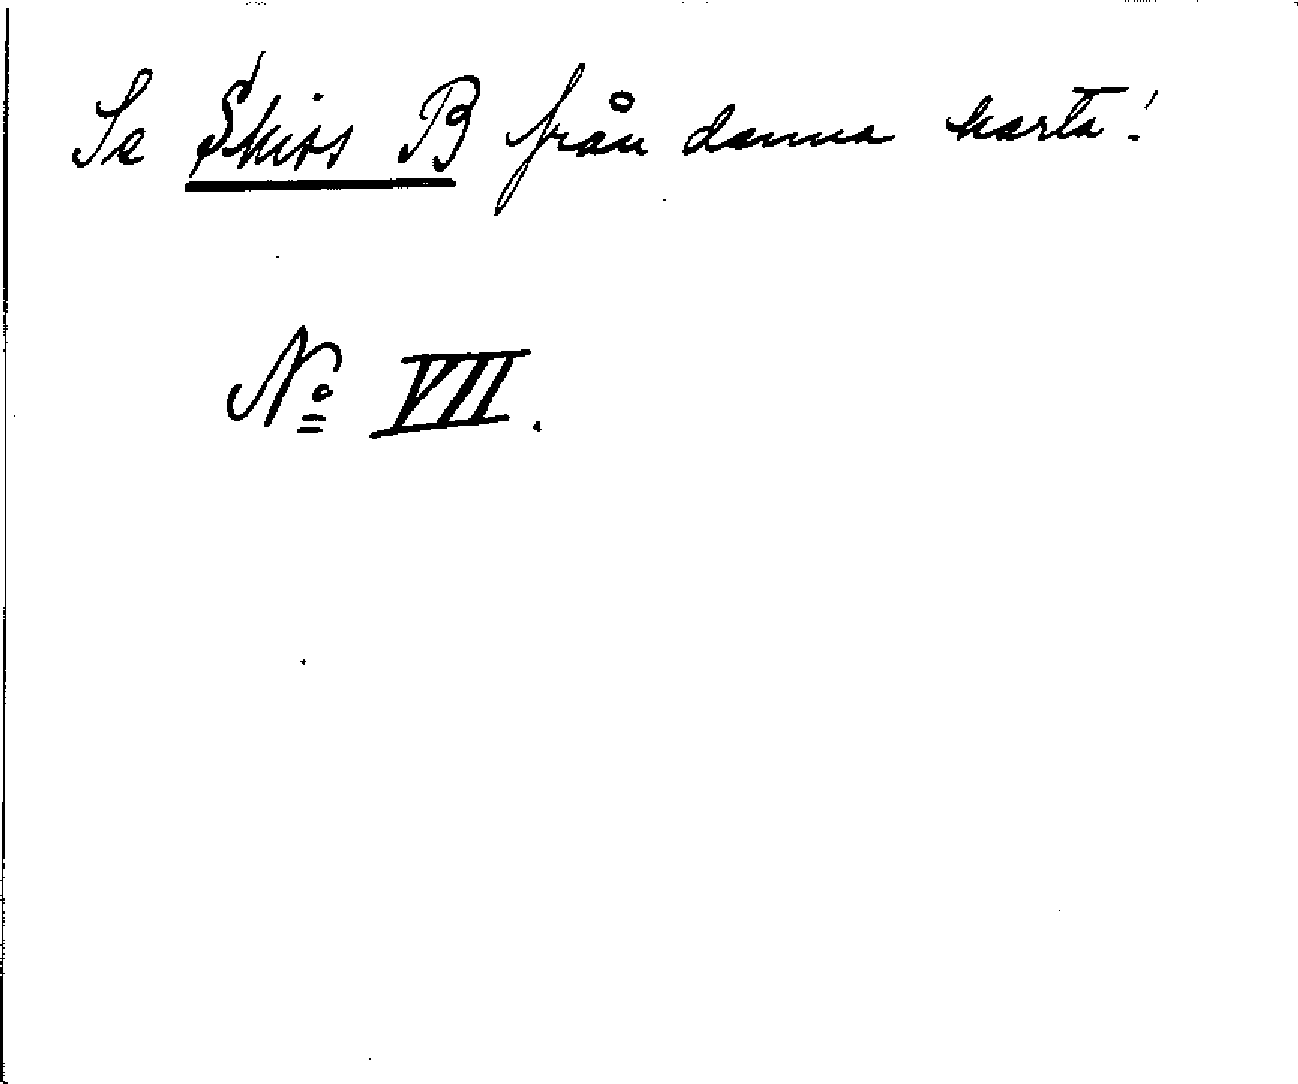 Se Skiss B från denna karta!
No VII.